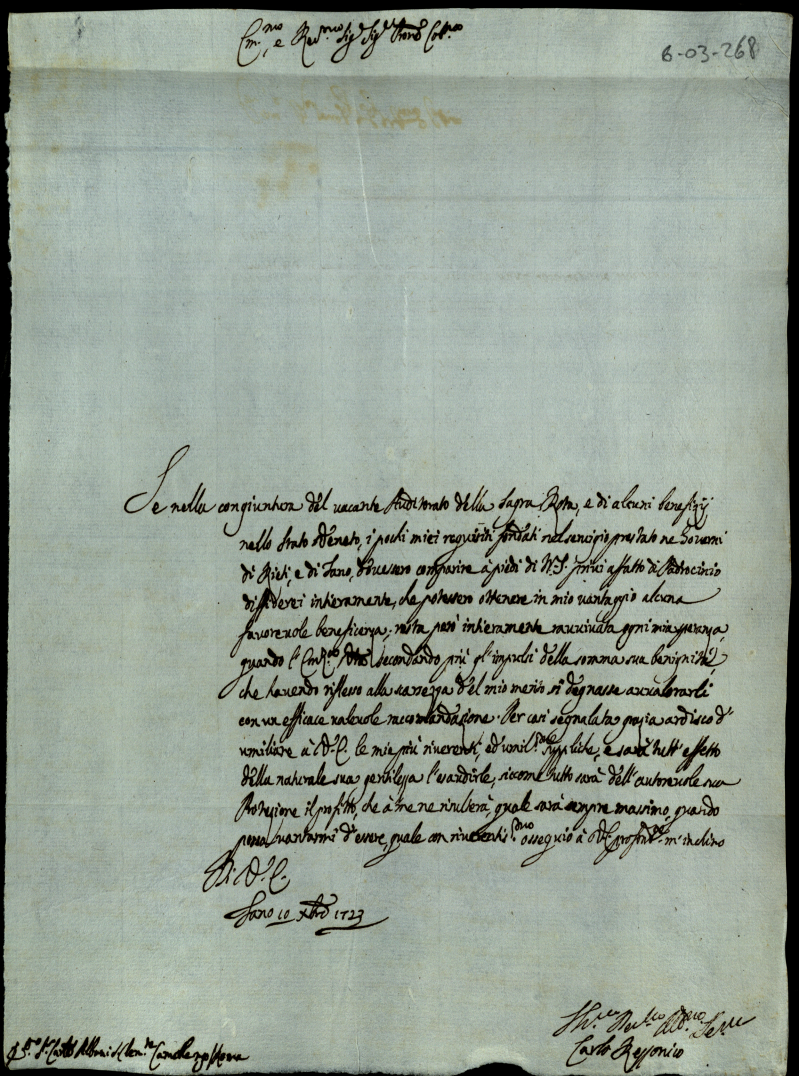 Em.mo e Rev.mo Sig.r Sig.r Pron Col.mo
6-03-268
Se nella congiuntura del vacante Auditorato della Sagra Rota, e di alcuni beneficij
nello Stato Veneto, i pochi miei requisiti fondati nel servigio prestato ne Governi
di Rieti, e di Fano, dovessero comparire à piedi di N. S. privi affatto di Padrocinio
diffiderei intieramente, che potessero ottenere in mio vantaggio alcuna
favorevole beneficenza; resta però intieramente ravvivata ogni mia speranza,
quando l' secondando più gl'impulsi della somma sua benignità,
che havendo riflesso alla scarsezza del mio merito si degnasse avvalorarli
con un efficace valevole raccomandazione. Per cosi segnalata grazia ardisco d'
umiliare à V. E. le mie più riverenti, ed umil.me suppliche, e sarà tutt' effetto
della naturale sua gentilezza l'esaudirle, sicome tutto sarà dell' autorevole sua
Protezione il profitto, che à me ne risulterà, quale sarà sempre massimo, quando
possa vantarmi d'essere, quale con riverentis.mo osseguio à V. E. profond.te m' inchino
Di V. E.
Fano 10 Xbre 1723
S.r Card Albani S. Clem.te Camerlengo Roma
Carlo Rezzonico